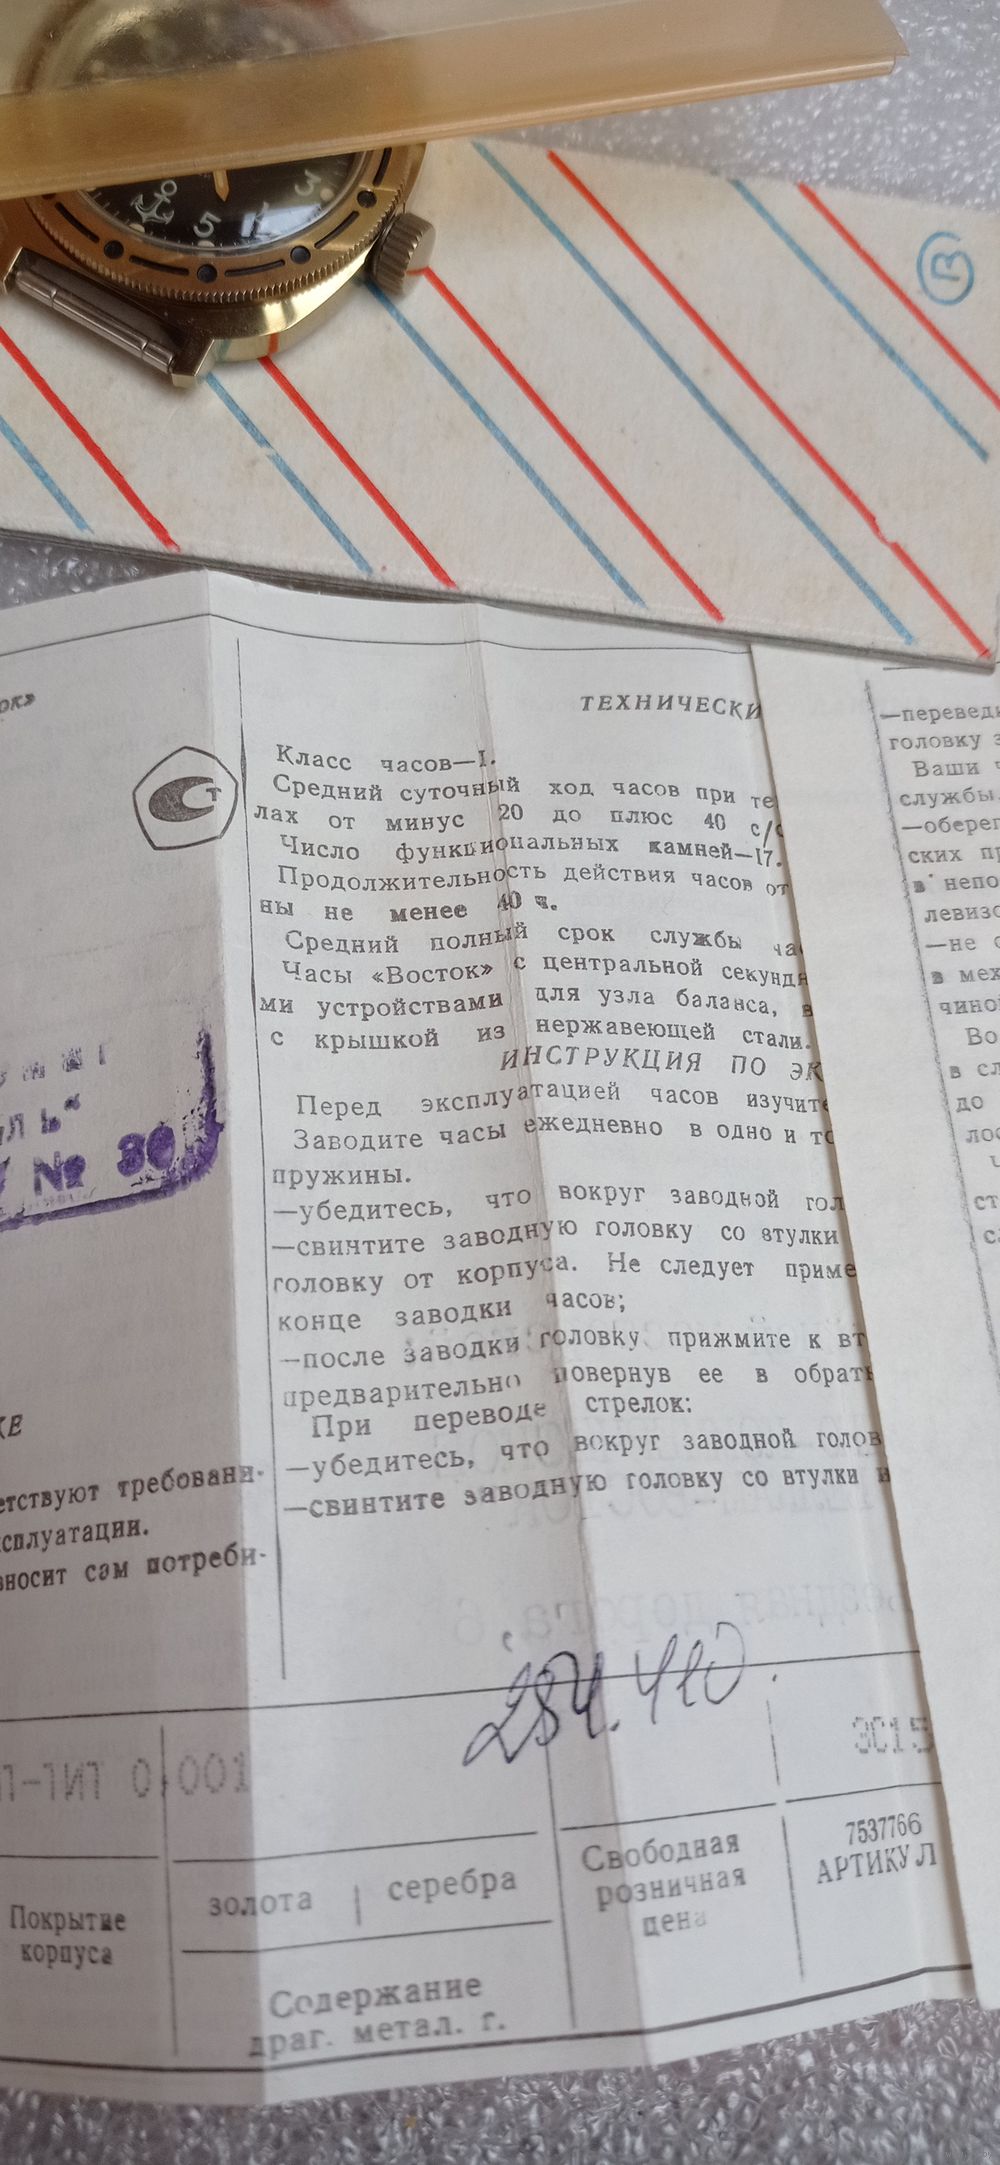 3
5
6
В
ок»
ТЕХНИЧЕСКИ
Ст
Класс часов—I.
Средний суточный ход часов при те
лах от минус 20 до плюс 40 с/с
Число функциональных камней—17.
Продолжительность действия часов от
ны не менее 40 ч.
Средний полный срок службы ча
Часы «Восток» с центральной секунд
ми устройствами для узла баланса, в
с крышкой из нержавеющей стали.
ИНСТРУКЦИЯ ПО ЭК
Перед эксплуатацией часов изучите
Заводите часы ежедневно в одно и то
пружины.
—убедитесь, что вокруг заводной гол
—свинтите заводную головку со втулки
головку от корпуса. Не следует приме
конце заводки часов;
—после заводки головку прижмите к вт
предварительно повернув ее в обрат
При переводе стрелок:
—убедитесь, что вокруг заводной голов
—свинтите заводную головку со втулки и
—перевед
головку з
Ваши ч
службы.
—оберег
ских пр
в непо
левизо
—не с
в мех
чиной
Во
в сл
до
лос
ст
са
ль"
№ 30
КЕ
етствуют требовани-
сплуатации.
зносит сам потреби-
284.410
П-ТИТ 0,001
ЭС15
7537766
АРТИКУЛ
Свободная
розничная
цена
золота | серебра
Покрытие
корпуса
Содержание
драг. метал. г.